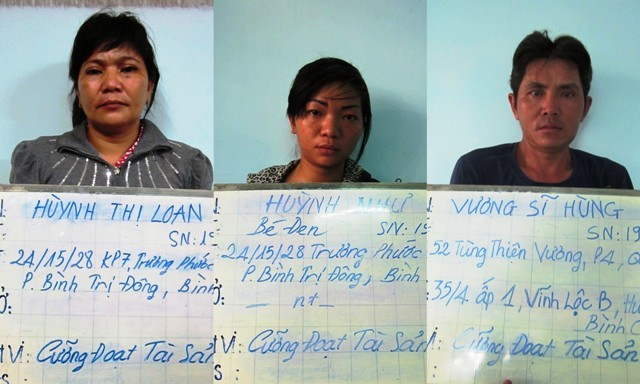 HUỲNH THỊ LOAN
SN: 19
24/15/28 KP7, Trương Phước
P. Bình Trị Đông, Bình
Vì: Cưỡng Đoạt Tài Sản
S
HUỲNH NHƯ
Bé Đen SN: 19
24/15/28 Trương Phước
P. Bình Trị Đông, Bình
_ nt _
VÌ: Cưỡng Đoạt Tài Sản
S
VƯƠNG SĨ HÙNG
SN: 19
52 Tùng Thiện Vương, P4, Q
35/4 ấp 1, Vĩnh Lộc B, Hu
Bình C
Cưỡng Đoạt Tài Sản
S